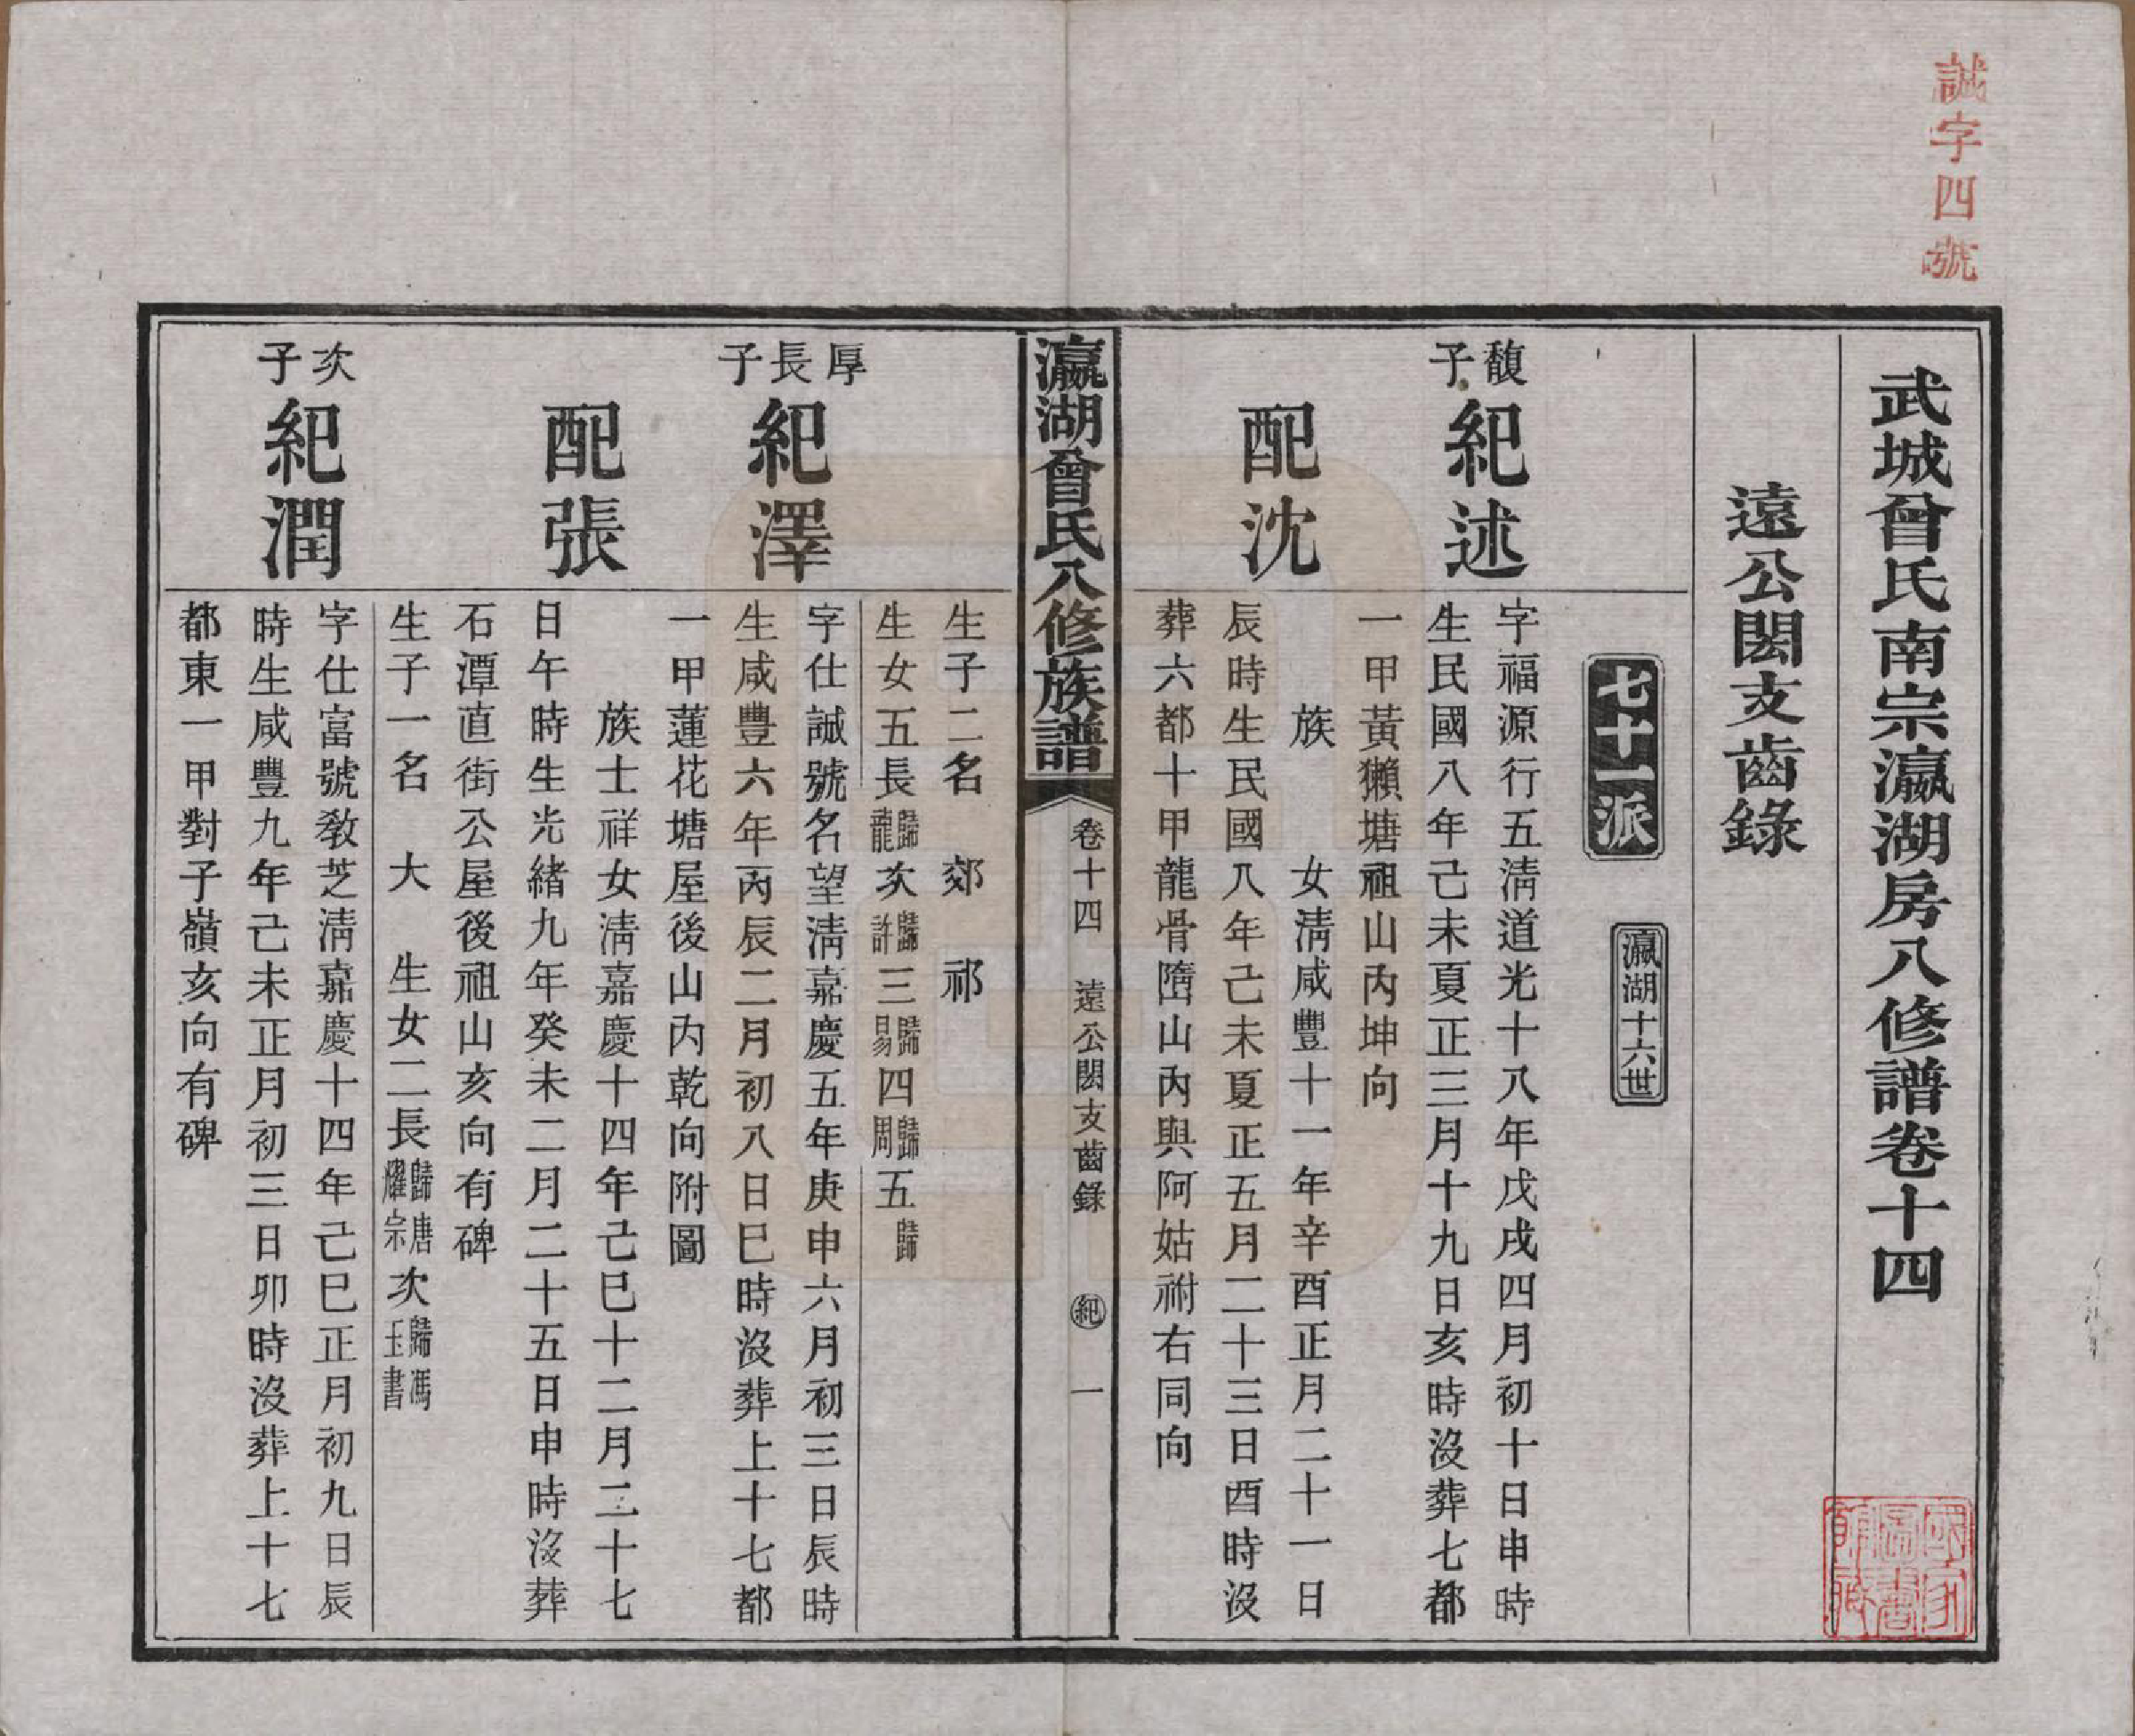 誠字四號
武城曾氏南宗瀛湖房八修譜卷十四
遠公閎支齒錄
七十一派
瀛湖十六世
馥子
紀述
字福源行五淸道光十八年戊戌四月初十日申時
生民國八年己未夏正三月十九日亥時沒葬七都
一甲黃獺塘祖山丙坤向
配沈
族 女淸咸豐十一年辛酉正月二十一日
辰時生民國八年己未夏正五月二十三日酉時沒
葬六都十甲龍骨隋山內與阿姑祔右同向
瀛湖曾氏八修族譜
卷十四 遠公閎支齒錄 紀 一
生子二名 郊 祁
生女五長歸龍次歸許三歸易四歸周五歸
厚長子
紀澤
字仕誠號名望淸嘉慶五年庚申六月初三日辰時
生咸豐六年丙辰二月初八日巳時沒葬上十七都
一甲蓮花塘屋後山內乾向附圖
配張
族士祥女淸嘉慶十四年己巳十二月二十七
日午時生光緒九年癸未二月二十五日申時沒葬
石潭直街公屋後祖山亥向有碑
生子一名 大 生女二長歸唐耀宗次歸馮玉書
次子
紀潤
字仕富號教芝淸嘉慶十四年己巳正月初九日辰
時生咸豐九年己未正月初三日卯時沒葬上十七
都東一甲對子嶺亥向有碑
國家圖書館藏